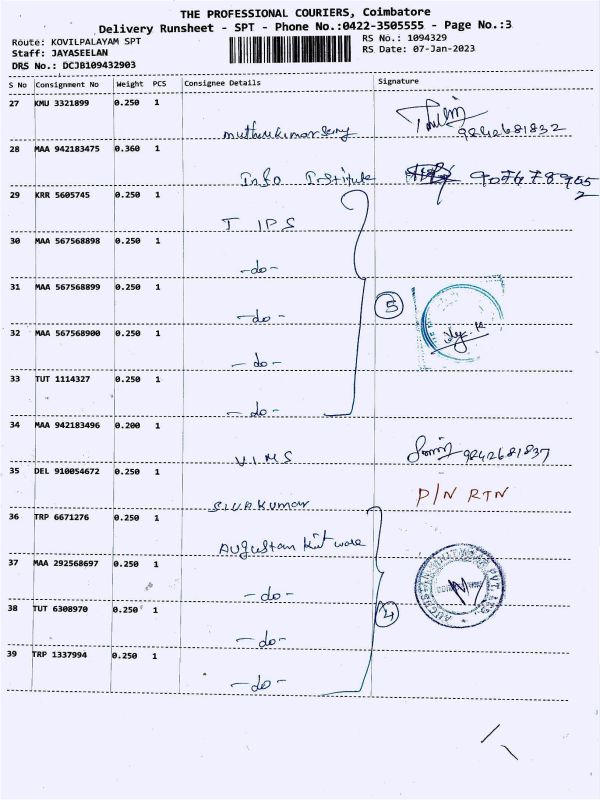 THE PROFESSIONAL COURIERS, Coimbatore
Delivery Runsheet - SPT - Phone No.:0422-3505555 - Page No.:3
Route: KOVILPALAYAM SPT
Staff: JAYASEELAN
DRS No.: DCJB109432903
RS No.: 1094329
RS Date: 07-Jan-2023
S No Consignment No Weight PCS Consignee Details Signature
27 KMU 3321899 0.250 1
9842681832
28 MAA 942183475 0.360 1
Info Institute
29 KRR 5605745 0.250 1
T IPS
30 MAA 567568898 0.250 1
-do-
31 MAA 567568899 0.250 1
-do- 5
32 MAA 567568900 0.250 1
-do-
33 TUT 1114327 0.250 1
-do-
34 MAA 942183496 0.200 1
V.I.M.S 9842681837
35 DEL 910054672 0.250 1
Sivakumar P/N RTN
36 TRP 6671276 0.250 1
Augustan Knit ware
37 MAA 292568697 0.250 1
-do-
38 TUT 6308970 0.250 1
-do- 4
39 TRP 1337994 0.250 1
-do-